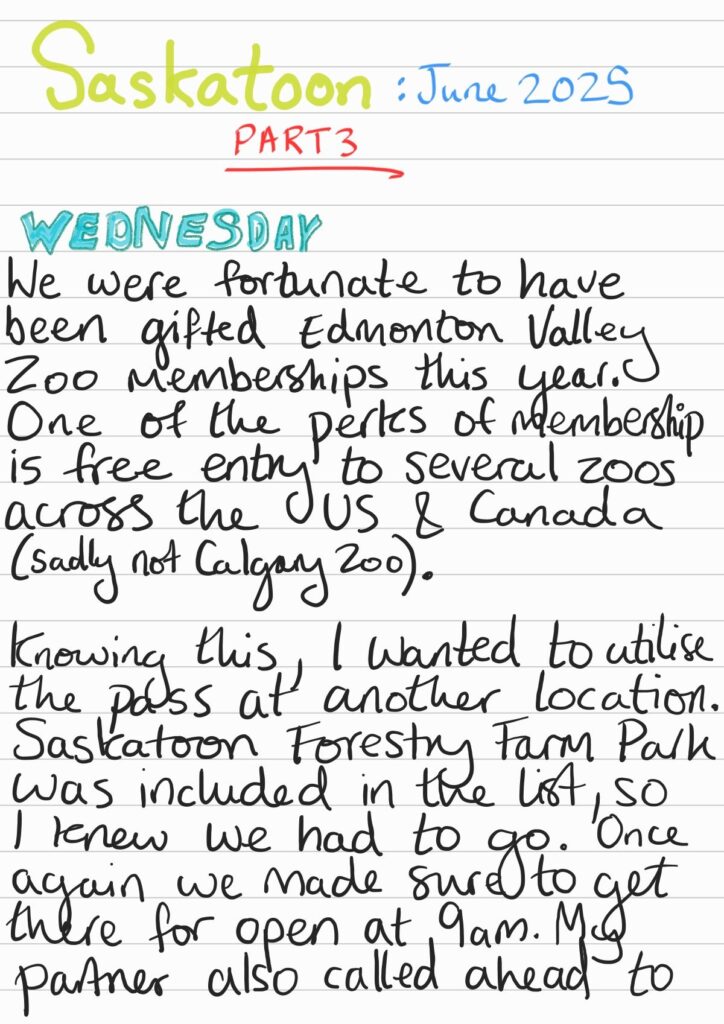 Saskatoon : June 2025
PART 3
WEDNESDAY
We were fortunate to have
been gifted Edmonton Valley
Zoo memberships this year.
One of the perks of membership
is free entry to several zoos
across the US & Canada
(sadly not Calgary Zoo).
Knowing this, I wanted to utilise
the pass at another location.
Saskatoon Forestry Farm Park
was included in the list, so
I knew we had to go. Once
again we made sure to get
there for open at 9am. My
partner also called ahead to